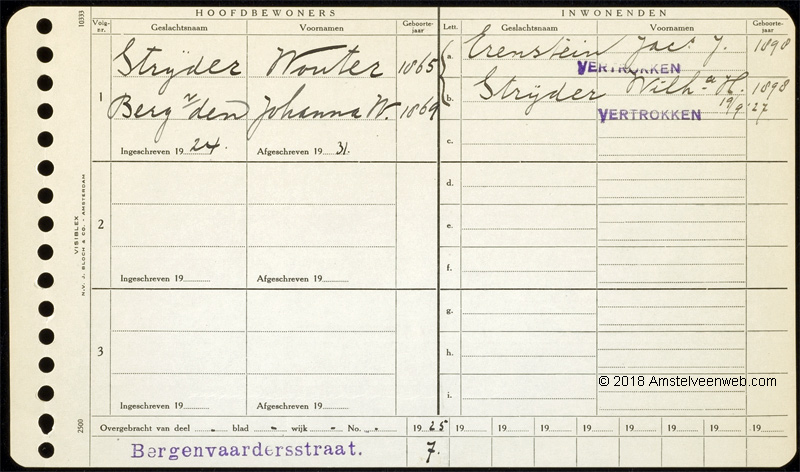 HOOFDBEWONERS
INWONENDEN
Volg-nr.
Geslachtsnaam
Voornamen
Geboorte-jaar
Lett.
Geslachtsnaam
Voornamen
Geboorte-jaar
1
Strÿder Wouter 1865
Berg v/den Johanna W. 1869
Ingeschreven 19 24. Afgeschreven 19 31.
2
Ingeschreven 19 Afgeschreven 19
3
Ingeschreven 19 Afgeschreven 19
a. Erenstein Jacs J. 1898
VERTROKKEN
b. Strÿder Wilha H. 1898
19/9 '27
VERTROKKEN
c.
d.
e.
f.
g.
h.
i.
© 2018 Amstelveenweb.com
Overgebracht van deel - blad - wijk - No. - 19 25 19 19 19 19 19 19 19 19
Bergenvaardersstraat. 7.
10333
VISIBLEX
N.V. J. BLOCH & CO. - AMSTERDAM
2500